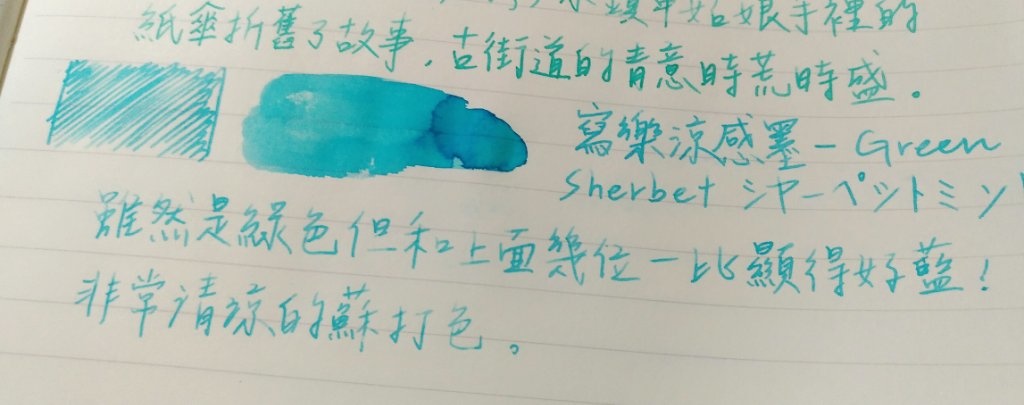 頭牟姑娘手裡的
紙傘折舊了故事，古街道的情意時荒時盛。
寫樂涼感墨－Green
Sherbet シャーペットミン
雖然是綠色但和上面幾位一比顯得好藍！
非常清涼的蘇打色。